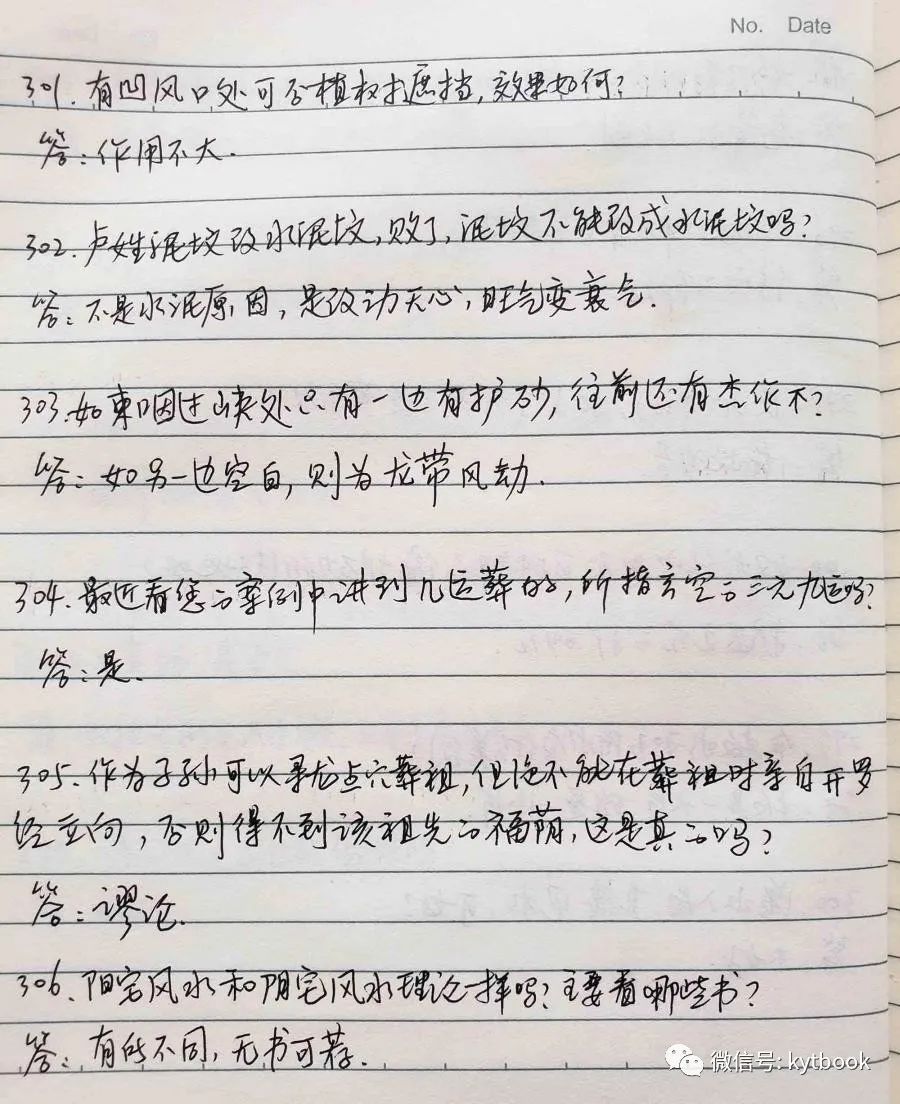 No. Date
301. 有凹风口处可否植树遮挡,效果如何?
答:作用不大.
302. 卢姓泥坟改水泥坟,败了,泥坟不能改成水泥坟吗?
答:不是水泥原因,是改动天心,旺气变衰气.
303. 如束咽过峡处只有一边有护砂,往前还有杰作不?
答:如另一边空白,则为龙带风劫.
304. 最近看您的案例中讲到几运葬的,所指玄空的三元九运吗?
答:是.
305. 作为子孙可以寻龙点穴葬祖,但绝不能在葬祖时亲自开罗
经立向,否则得不到该祖先的福荫,这是真的吗?
答:谬论.
306、阳宅风水和阴宅风水理论一样吗?主要看哪些书?
答:有所不同,无书可荐.
微信号: kytbook